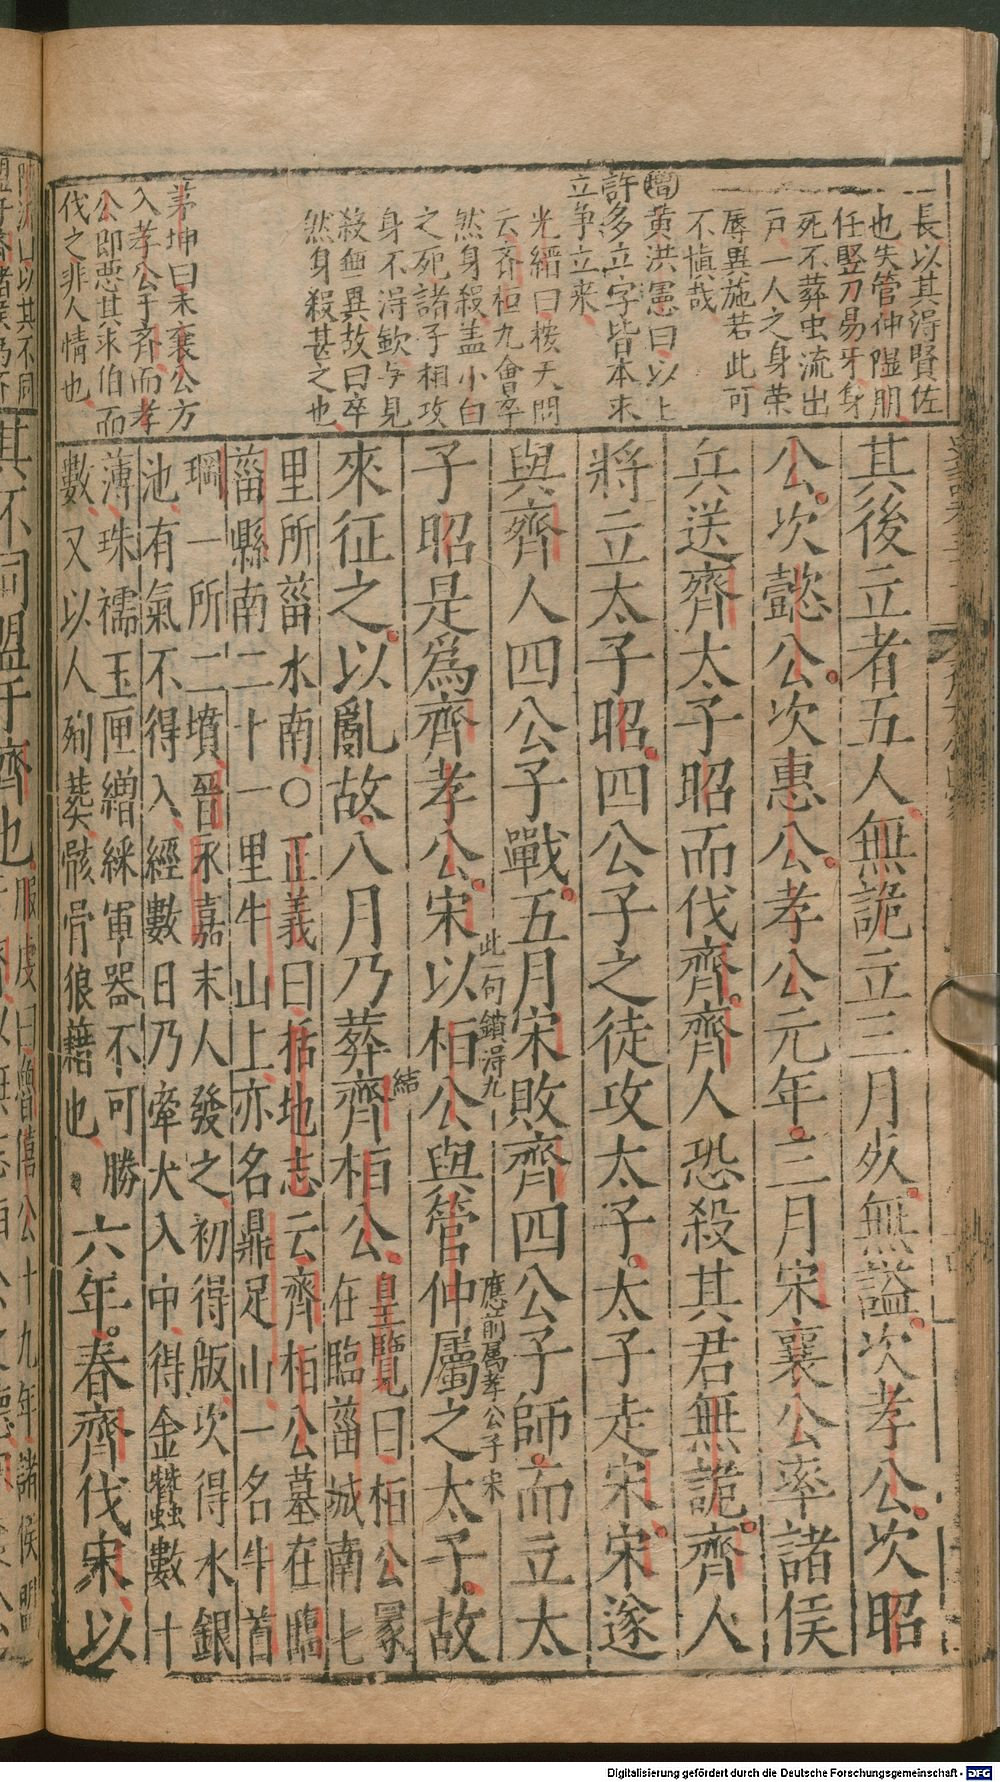 長以其得賢佐
也失管仲隰朋
任豎刀易牙身
死不葬虫流出
戸一人之身榮
辱異施若此可
不慎哉
增黃洪憲曰以上
許多立字皆本來
立爭立來
光縉曰桉天問
云齊桓九會卒
然身殺盖小白
之死諸子相攻
身不得歛与見
殺無異故曰卒
然身殺甚之也
茅坤曰宋襄公方
入孝公于齊而孝
公即惡其求伯而
伐之非人情也
其後立者五人無詭立三月死無謚次孝公次昭
公次懿公次惠公孝公元年三月宋襄公率諸侯
兵送齊太子昭而伐齊齊人恐殺其君無詭齊人
將立太子昭四公子之徒攻太子太子走宋宋遂
與齊人四公子戰五月宋敗齊四公子師而立太
此一句鎖得九
應前屬孝公于宋
子昭是爲齊孝公宋以桓公與管仲屬之太子故
結
來征之以亂故八月乃葬齊桓公
皇覽曰桓公冢
在臨菑城南七
里所菑水南○正義曰括地志云齊桓公墓在臨
菑縣南二十一里牛山上亦名鼎足山一名牛首
堈一所二墳晉永嘉末人發之初得版次得水銀
池有氣不得入經數日乃牽犬入中得金蠶數十
薄珠襦玉匣繒綵軍器不可勝
數又以人殉葬骸骨狼藉也
六年春齊伐宋以
其不同盟于齊也
Digitalisierung gefördert durch die Deutsche Forschungsgemeinschaft - DFG